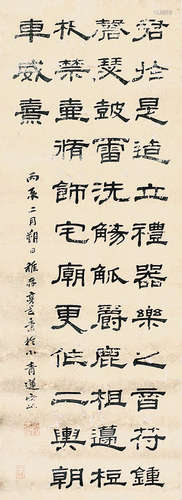 君於是造立禮器樂之音符鍾
磬瑟鼓雷洗觴觚爵鹿柤籩梪
柉禁壷脩飾宅廟更作二輿朝
車威熹
丙辰二月朔日雅書於小青蓮室